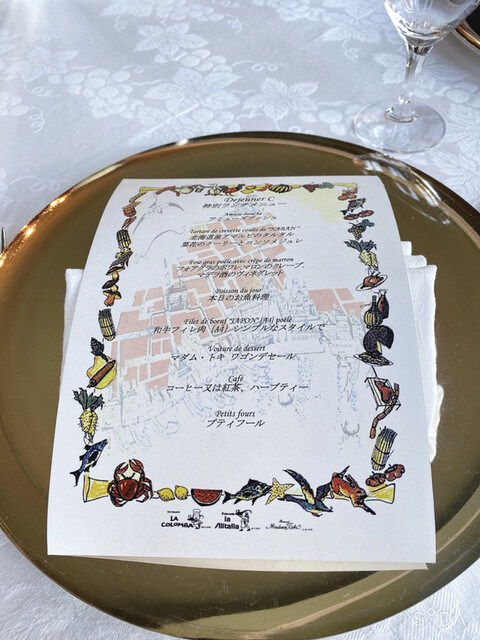 Dejeuner C
特別ランチメニュー
Amuse bouche
アミューズブッシュ
Tartare de crevette coulis de "NABAN"
北海道産アマエビのタルタル
菜花のクーリーとコンソメジュレ
Foie gras poêle avec crêpe de marron
フォアグラのポワレ、マロンのクレープ、
マデラ酒のヴィネグレット
Poisson du jour
本日のお魚料理
Filet de boeuf "JAPON" (A4) poêlé
和牛フィレ肉（A4）シンプルなスタイルで
Voiture de dessert
マダム・トキ ワゴンデセール
Café
コーヒー又は紅茶、ハーブティー
Petits fours
プティフール
LA COLOMBA
la Alitalia
Madame Toki